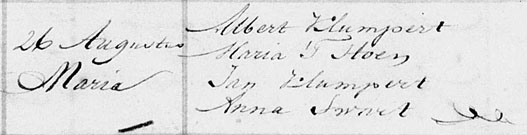 26 Augustus
Maria
Albert Klumpert
Maria 'T Hoen
Jan Klumpert
Anna Swart